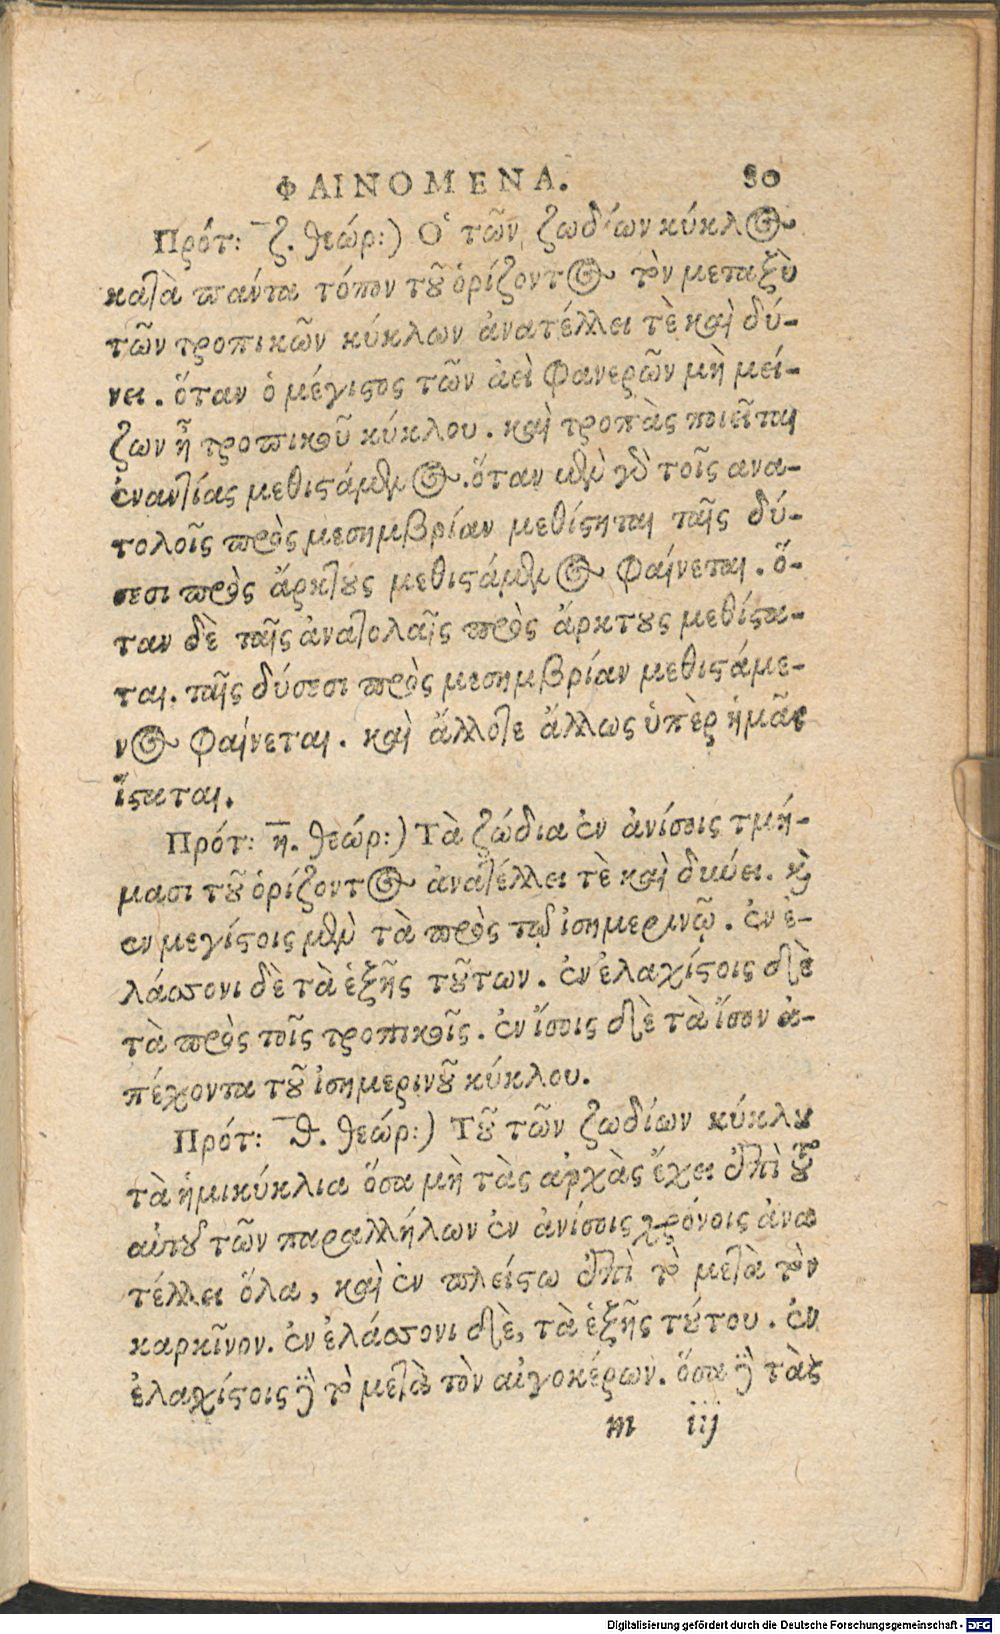 ΦΑΙΝΟΜΕΝΑ. 90
Πρότ: ζ̅. θεώρ:) Ὁ τῶν ζωδίων κύκλος
κατὰ πάντα τόπον τοῦ ὁρίζοντος τὸν μεταξὺ
τῶν τροπικῶν κύκλων ἀνατέλλει τὲ καὶ δύ-
νει. ὅταν ὁ μέγιστος τῶν ἀεὶ φανερῶν μὴ μεί-
ζων ἦ τροπικοῦ κύκλου. καὶ τροπὰς ποιεῖται
ἐναντίας μεθιστάμενος. ὅταν μὲν γὰρ τοῖς ανα-
τολοῖς πρὸς μεσημβρίαν μεθίσηται ταῖς δύ-
σεσι πρὸς ἄρκτους μεθιστάμενος φαίνεται. ὅ-
ταν δὲ ταῖς ἀνατολαῖς πρὸς ἄρκτους μεθίστα-
ται. ταῖς δύσεσι πρὸς μεσημβρίαν μεθιστάμε-
νος φαίνεται. καὶ ἄλλοτε ἄλλως ὑπὲρ ἡμᾶς
ἵσταται.
Πρότ: η̅. θεώρ:) Τὰ ζώδια ἐν ἀνίσοις τμή-
μασι τοῦ ὁρίζοντος ἀνατέλλει τὲ καὶ δύει. καὶ
ἐν μεγίστοις μὲν τὰ πρὸς τῷ ἰσημερινῷ. ἐν ἐ-
λάσσονι δὲ τὰ ἑξῆς τούτων. ἐν ἐλαχίστοις δὲ
τὰ πρὸς τοῖς τροπικοῖς. ἐν ἴσοις δὲ τὰ ἴσον ἀ-
πέχοντα τοῦ ἰσημερινοῦ κύκλου.
Πρότ: θ̅. θεώρ:) Τοῦ τῶν ζωδίων κύκλου
τὰ ἡμικύκλια ὅσα μὴ τὰς αρχὰς ἔχει ἐπὶ τοῦ
αὐτοῦ τῶν παραλλήλων ἐν ἀνίσοις χρόνοις ἀνα
τέλλει ὅλα, καὶ ἐν πλείστω ἐπὶ τὸ μετὰ τὸν
καρκῖνον. ἐν ἐλάσσονι δὲ, τὰ ἑξῆς τούτου. ἐν
ἐλαχίστοις δὲ τὸ μετὰ τὸν αἰγοκέρων. ὅσα δὲ τὰς
m iij
Digitalisierung gefördert durch die Deutsche Forschungsgemeinschaft - DFG